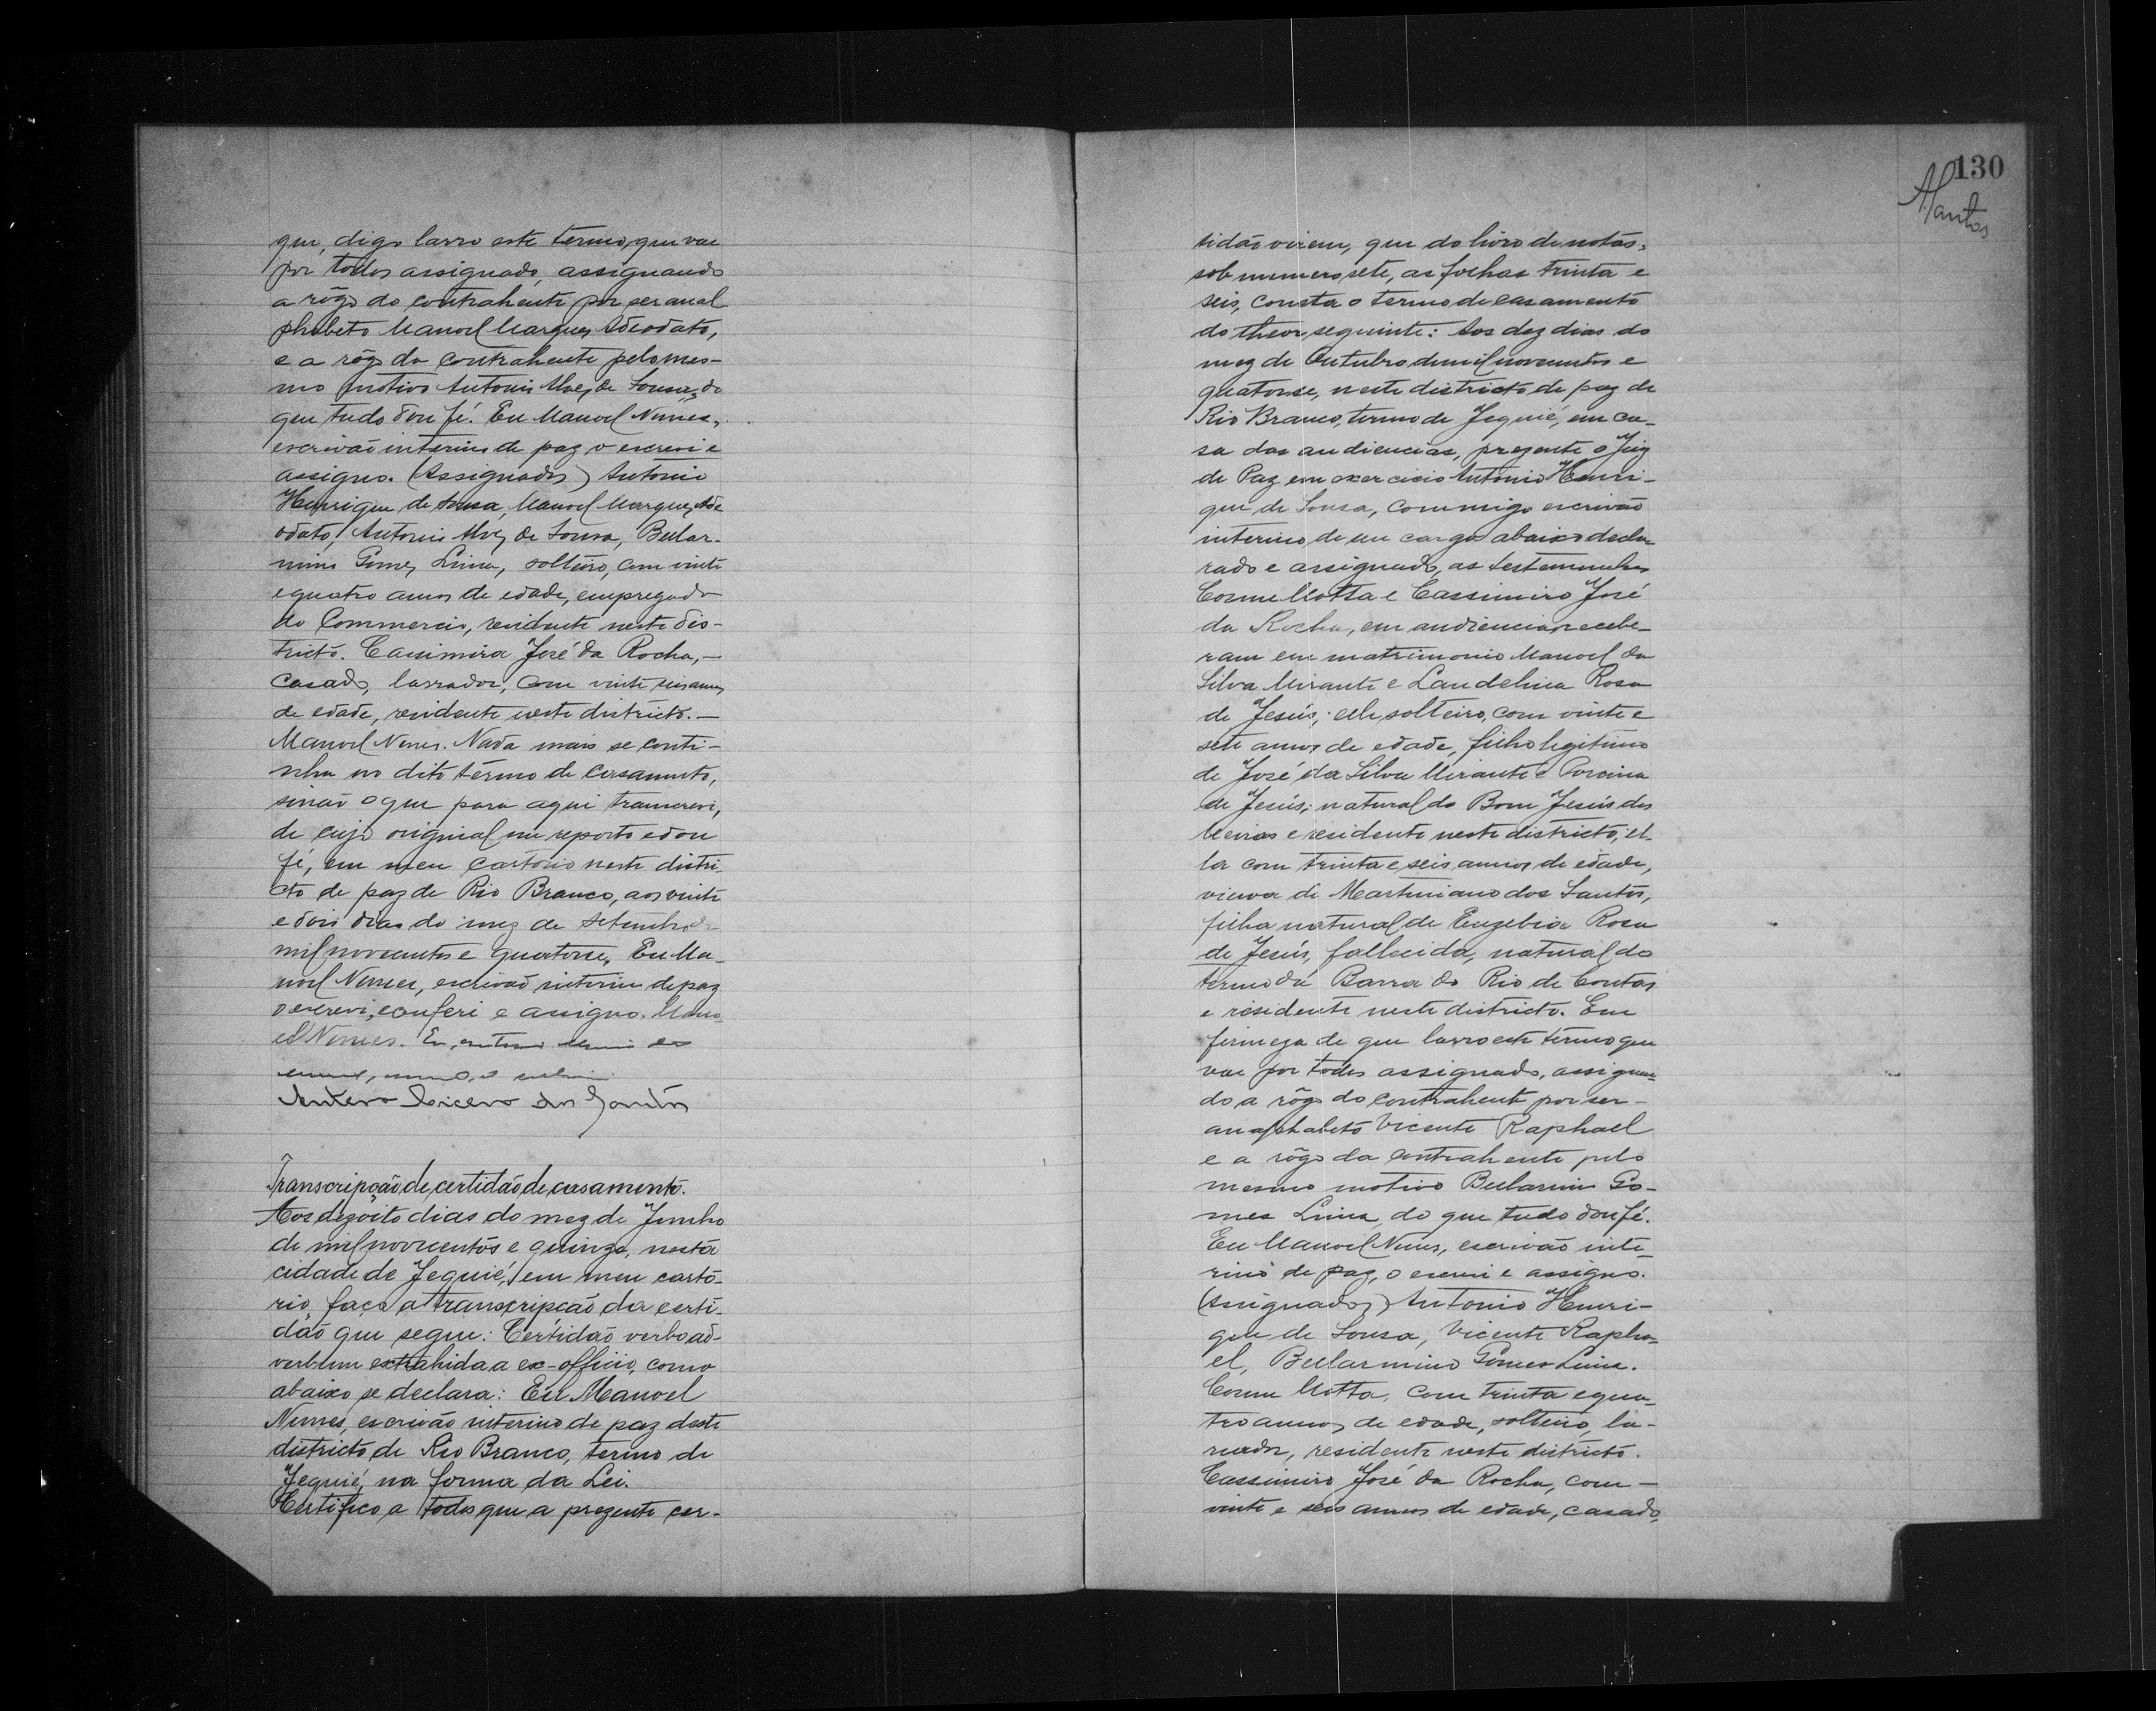 que, digo lavro este termo, que vae
por todos assignado, assignando
a rôgo do contrahente por ser anal
phabeto Manoel Marques Adeodato,
e a rôgo da contrahente pelo mes-
mo motivo Antonio Alves de Sousa, do
que tudo dou fé. Eu Manoel Nunes,
escrivão interino de paz o escrevi e
assigno. (Assignados) Antonio
Henrique de Sousa, Manoel Marques Ade
odato, Antonio Alves de Sousa, Bellar-
mino Gomes Lima, solteiro, com vinte
e quatro annos de edade, empregado
do Commercio, residente neste dis-
tricto. Cassimiro José da Rocha,-
casado, lavrador, com vinte seis annos
de edade, residente neste districto.-
Manoel Nunes. Nada mais se conti-
nha no dito têrmo de casamento,
sinão o que para aqui transcrevi,
de cujo original me reporto e dou
fé, em meu cartorio neste distri-
cto de paz de Rio Branco, aos vinte
e dois dias do mez de Setembro de
mil novecentos e quatorse. Eu Ma-
noel Nunes, escrivão interino de paz
o escrevi, conferi e assigno. Mano
el Nunes. Eu,
Antero Cicero dos Santos
Transcripção de certidão de casamento.
Aos dezoito dias do mez de Junho
de mil novecentos e quinze, nesta
cidade de Jequié, em meu cartó-
rio, faço a transcripção da certi-
dão que segue: Certidão verbo ad-
verbum extrahida a ex-officio, como
abaixo se declara: Eu Manoel
Nunes, escrivão interino de paz deste
districto de Rio Branco, termo de
Jequié, na forma da Lei.
Certifico a todos que a prezente cer-
130
A Santos
tidão virem, que do livro de notas,
sob numero sete, as folhas trinta e
seis, consta o termo de casamento
do theor seguinte: Aos dez dias do
mez de Outubro de mil novecentos e
quatorse, neste districto de paz de
Rio Branco, termo de Jequié, em ca-
sa das audiencias, prezente o Juiz
de Paz em exercicio Antonio Henri-
que de Sousa, commigo escrivão
interino de seu cargo abaixo decla
rado e assignado, as testemunhas
Cosme Motta e Cassimiro José
da Rocha, em audiencia, recebe-
ram em matrimonio Manoel da
Silva Mirante e Laudelina Rosa
de Jesús; elle solteiro, com vinte e
sete annos de edade, filho legitimo
de José da Silva Mirante e Porcina
de Jesús; natural do Bom Jesús dos
Meiras e residente neste districto; el-
la com trinta e seis annos de edade,
viuva de Martiniano dos Santos,
filha natural de Euzebia Rosa
de Jesús, fallecida, natural do
termo da Barra do Rio de Contas
e residente neste districto. Em
firmeza de que lavro este têrmo que
vae por todos assignado, assignan-
do a rôgo do contrahente por ser-
anaphabeto Vicente Raphael
e a rôgo da contrahente pelo
mesmo motivo Bellarmino Go-
mes Lima, do que tudo dou fé.
Eu Manoel Nunes, escrivão inte-
rino de paz, o escrevi e assigno.
(Assignados) Antonio Henri-
que de Sousa, Vicente Rapha-
el, Bellarmino Gomes Lima.
Cosme Motta, com trinta e qua-
tro annos de edade, solteiro, la-
vrador, residente neste districto.
Cassimiro José da Rocha, com-
vinte e seis annos de edade, casado,